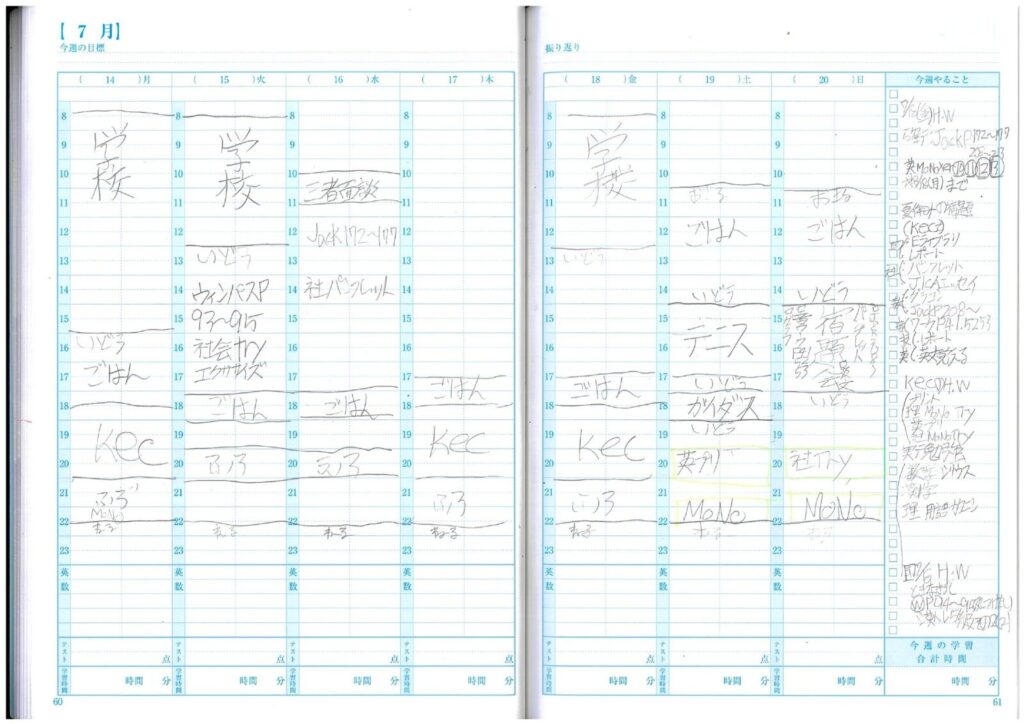 【 7 月】
今週の目標
振り返り
( 14 )月
8
9
10
11
12
13
14
15
16
17
18
19
20
21
22
23
学校
いどう
ごはん
Kec
ふろ
MoNo
ねる
英
数
テスト 点
学習時間 時間 分
( 15 )火
8
9
10
11
12
13
14
15
16
17
18
19
20
21
22
23
学校
いどう
ウィンパスP
93〜95
社会try
エクササイズ
ごはん
ふろ
ねる
英
数
テスト 点
学習時間 時間 分
( 16 )水
8
9
10
11
12
13
14
15
16
17
18
19
20
21
22
23
三者面談
Jock172〜177
社パンフレット
ごはん
ふろ
ねる
英
数
テスト 点
学習時間 時間 分
( 17 )木
8
9
10
11
12
13
14
15
16
17
18
19
20
21
22
23
ごはん
Kec
ふろ
ねる
英
数
テスト 点
学習時間 時間 分
( 18 )金
8
9
10
11
12
13
14
15
16
17
18
19
20
21
22
23
学校
いどう
ごはん
Kec
ふろ
ねる
英
数
テスト 点
学習時間 時間 分
( 19 )土
8
9
10
11
12
13
14
15
16
17
18
19
20
21
22
23
おきる
ごはん
いどう
テニス
いどう
ガイダス
いどう
英プリ
MoNo
ねる
英
数
テスト 点
学習時間 時間 分
( 20 )日
8
9
10
11
12
13
14
15
16
17
18
19
20
21
22
23
おきる
ごはん
いどう
宿題
いどう
社Try
MoNo
ねる
英
数
テスト 点
学習時間 時間 分
今週やること
H.W
JockP172〜177
まで
(Kec)
Eライブラリ
レポート
パンフレット
JICAエッセイ
JockP208〜
レポート
KecのH.W
プリント
理 MoNo Try
英プリ
MoNoTry
シリウス
漢字
理 用語
H.W
今週の学習
合計時間
時間 分
60
61